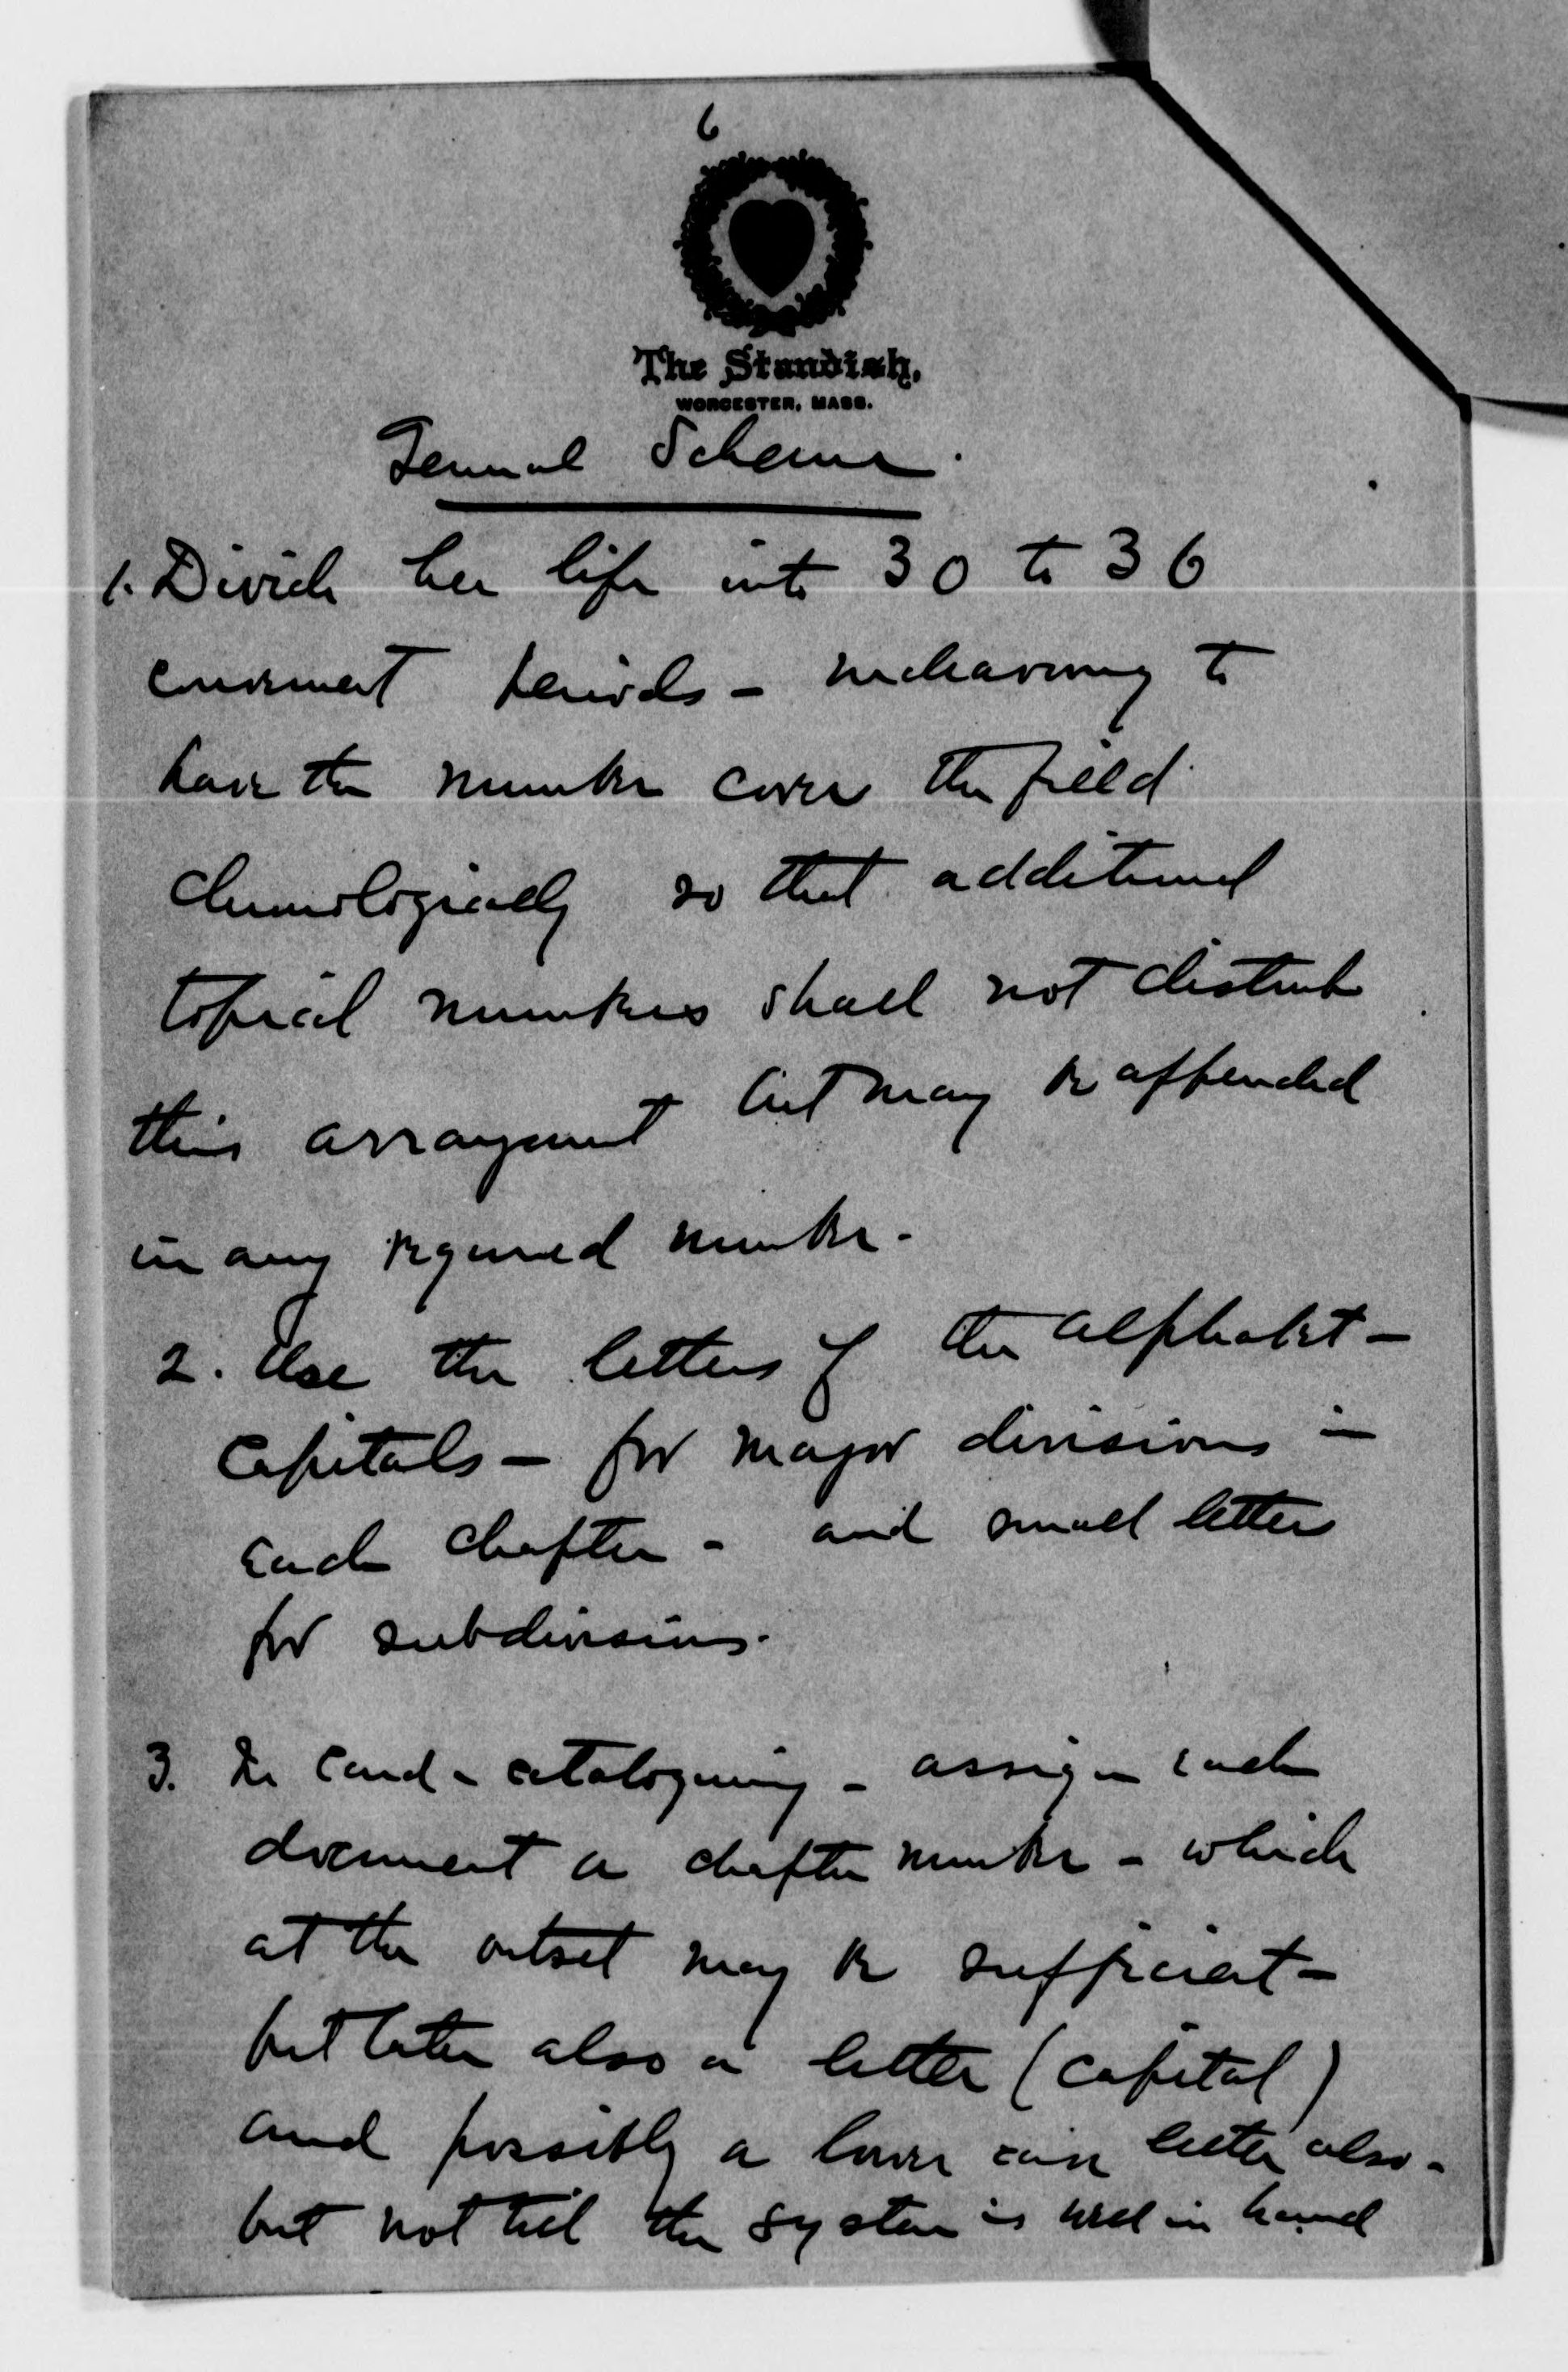 6
The Standish.
WORCESTER, MASS.
General Scheme.
1. Divide her life into 30 to 36
convenient periods – endeavoring to
have the number cover the field
chronologically so that additional
topical numbers shall not disturb
this arrangement but may be appended
in any required number.
2. Use the letters of the alphabet –
Capitals – for major divisions in
each chapter – and small letters
for subdivisions.
3. In card-cataloguing – assign each
document a chapter number – which
at the outset may be sufficient –
but later also a letter (capital)
and possibly a lower case letter also –
but not till the system is well in hand